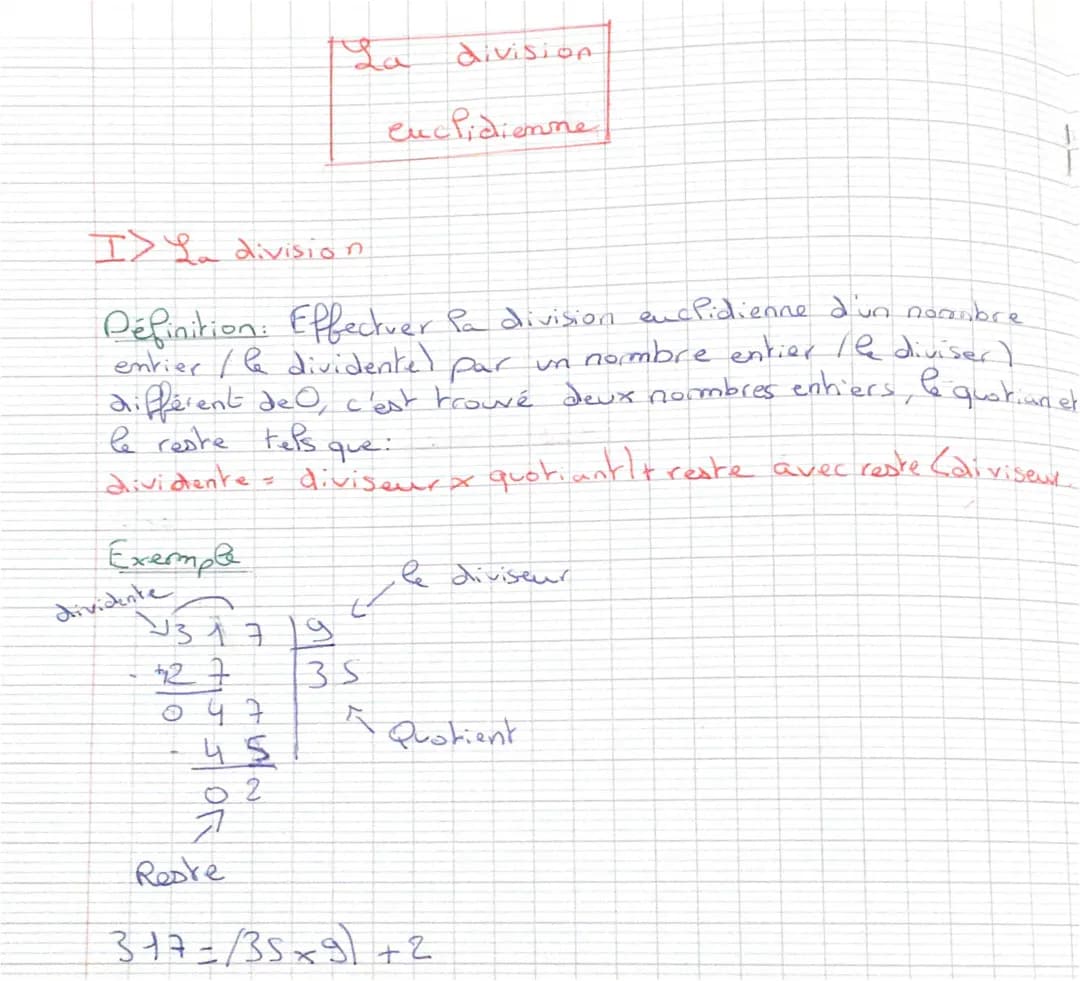 La division
euclidienne
I> La division
Définition: Effectuer la division euclidienne d'un nombre
entier (le dividente) par un nombre entier (le diviser)
différent de 0, c'est trouvé deux nombres entiers, le quotian et
le reste tels que:
dividente = diviseur x quotiant) + reste avec reste < diviseur
Exemple
le diviseur
dividente
317 | 9
- 27 | 35
047
Quotient
- 45
02
Reste
317 = (35 x 9) + 2